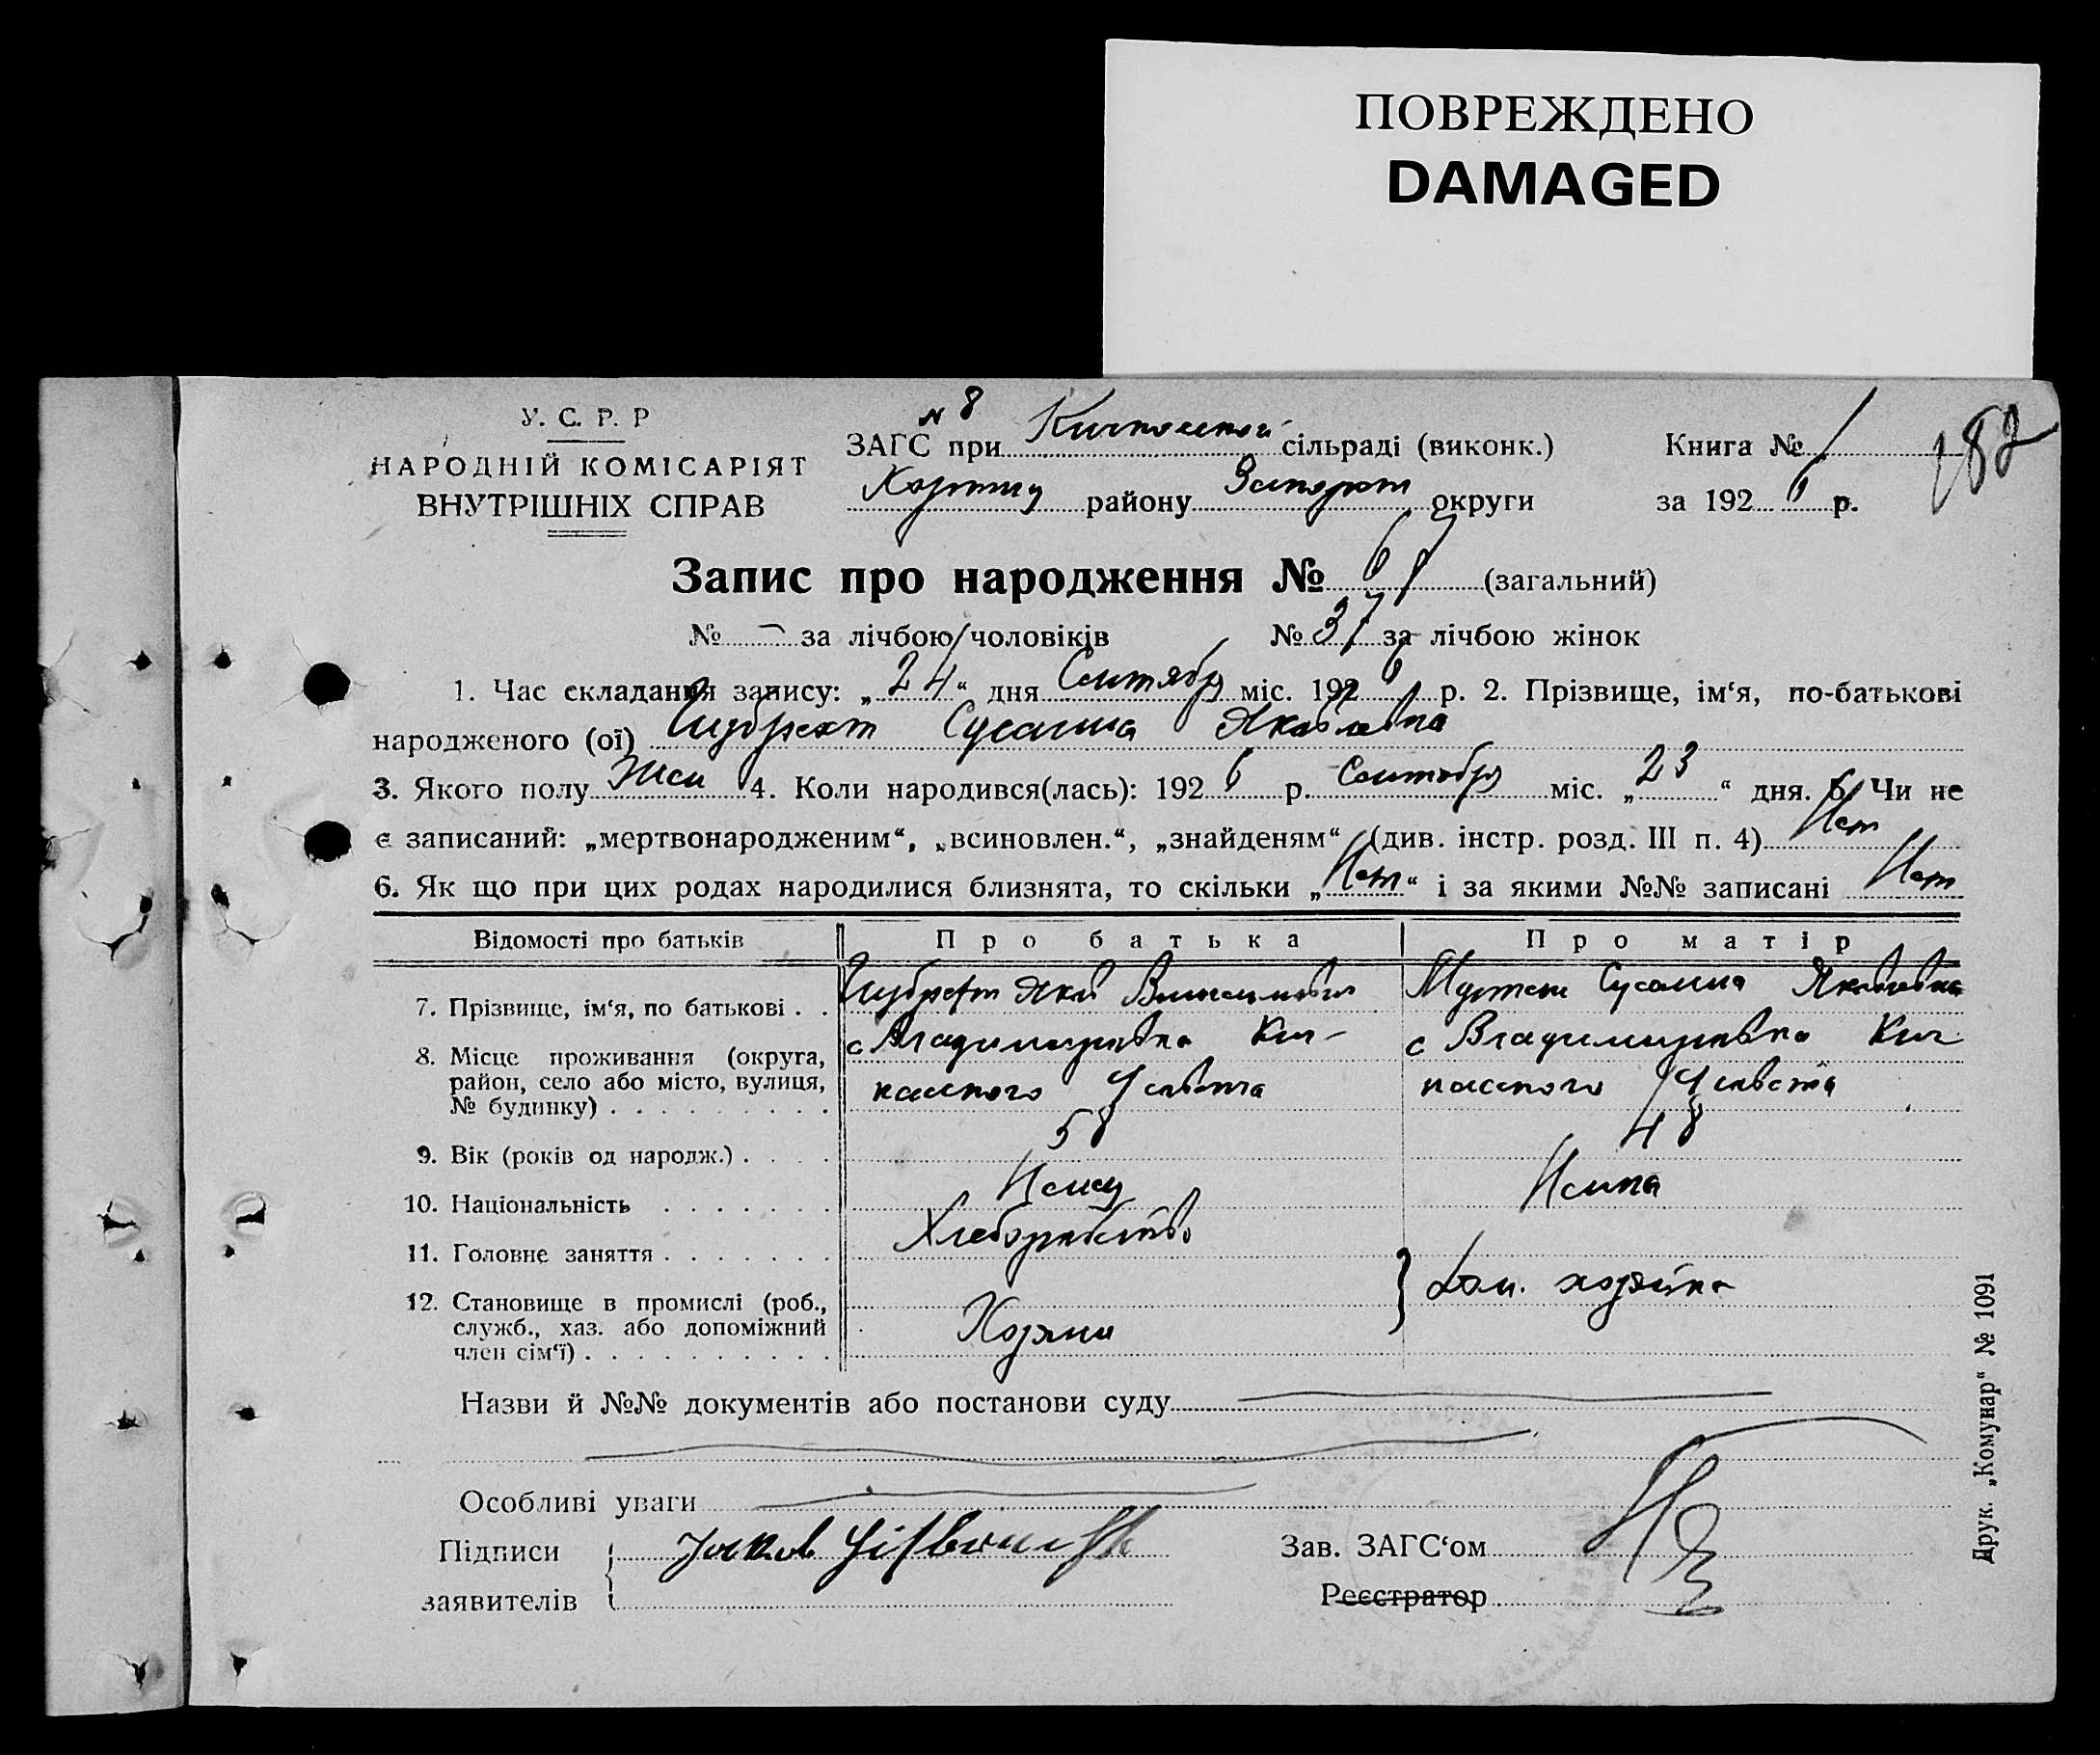 ПОВРЕЖДЕНО
DAMAGED
У. С. Р. Р
НАРОДНІЙ КОМІСАРІЯТ
ВНУТРІШНІХ СПРАВ
N 8
ЗАГС при Кичкасской сільраді (виконк.)
Хортиц району Запорож округи
Книга № 1
за 1926 р.
182
Запис про народження № 67 (загальний)
№ — за лічбою чоловіків № 37 за лічбою жінок
1. Час складання запису: „24“ дня Сентября міс. 1926 р. 2. Прізвище, ім‘я, по-батькові
народженого (ої) Сусанна Яковлевна
3. Якого полу Жен 4. Коли народився(лась): 1926 р. Сентября міс. „23“ дня. 5. Чи не
є записаний: „мертвонародженим“, „всиновлен.“, „знайденям“ (див. інстр. розд. III п. 4) Нет
6. Як що при цих родах народилися близнята, то скільки „Нет“ і за якими №№ записані Нет
Відомості про батьків Про батька Про матір
7. Прізвище, ім‘я, по батькові . . Яков Сусанна Яковлевна
8. Місце проживання (округа, район, село або місто, вулиця, № будинку) . . . . . . . . .
с Владимировка Кич-
касского Усельства
с Владимировка Кич
касского
9. Вік (років од народж.) . . . . 58 48
10. Національність . . . . . . . Немец Немка
11. Головне заняття . . . . . . . Хлеборобство
12. Становище в промислі (роб., служб., хаз. або допоміжний член сім‘ї) . . . . . . . . . .
Хозяин
} Дом. хозяйка
Назви й №№ документів або постанови суду
Особливі уваги
Підписи
заявителів
Jakob
Зав. ЗАГС‘ом
Реєстратор
Друк. „Комунар“ № 1091